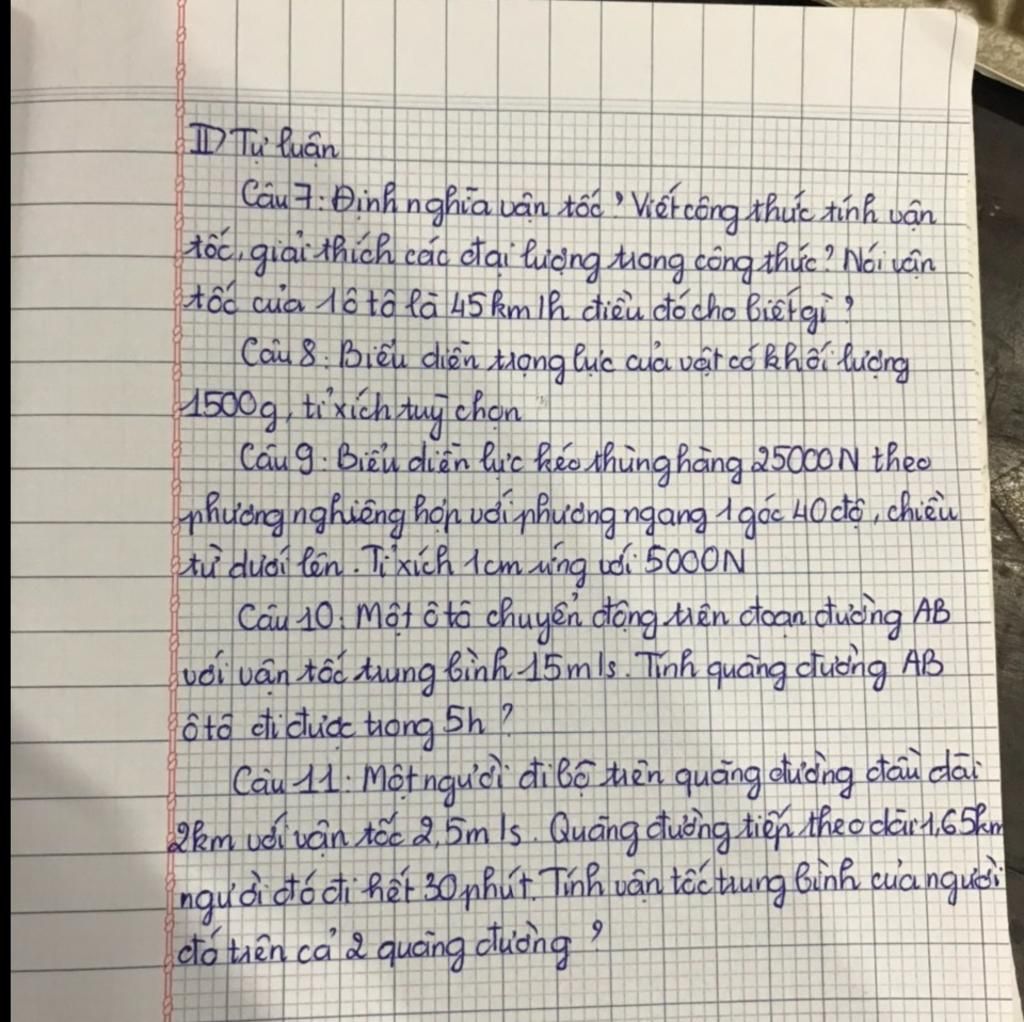 II) Tự luận
Câu 7: Định nghĩa vận tốc? Viết công thức tính vận
tốc, giải thích các đại lượng trong công thức? Nói vận
tốc của 1 ô tô là 45km/h điều đó cho biết gì?
Câu 8: Biểu diễn trọng lực của vật có khối lượng
1500g, tỉ xích tuỳ chọn
Câu 9: Biểu diễn lực kéo thùng hàng 25000N theo
phương nghiêng hợp với phương ngang 1 góc 40 độ, chiều
từ dưới lên. Tỉ xích 1cm ứng với 5000N
Câu 10: Một ô tô chuyển động trên đoạn đường AB
với vận tốc trung bình 15m/s. Tính quãng đường AB
ô tô đi được trong 5h?
Câu 11: Một người đi bộ trên quãng đường đầu dài
2km với vận tốc 2,5m/s. Quãng đường tiếp theo dài 1,65km
người đó đi hết 30 phút. Tính vận tốc trung bình của người
đó trên cả 2 quãng đường?